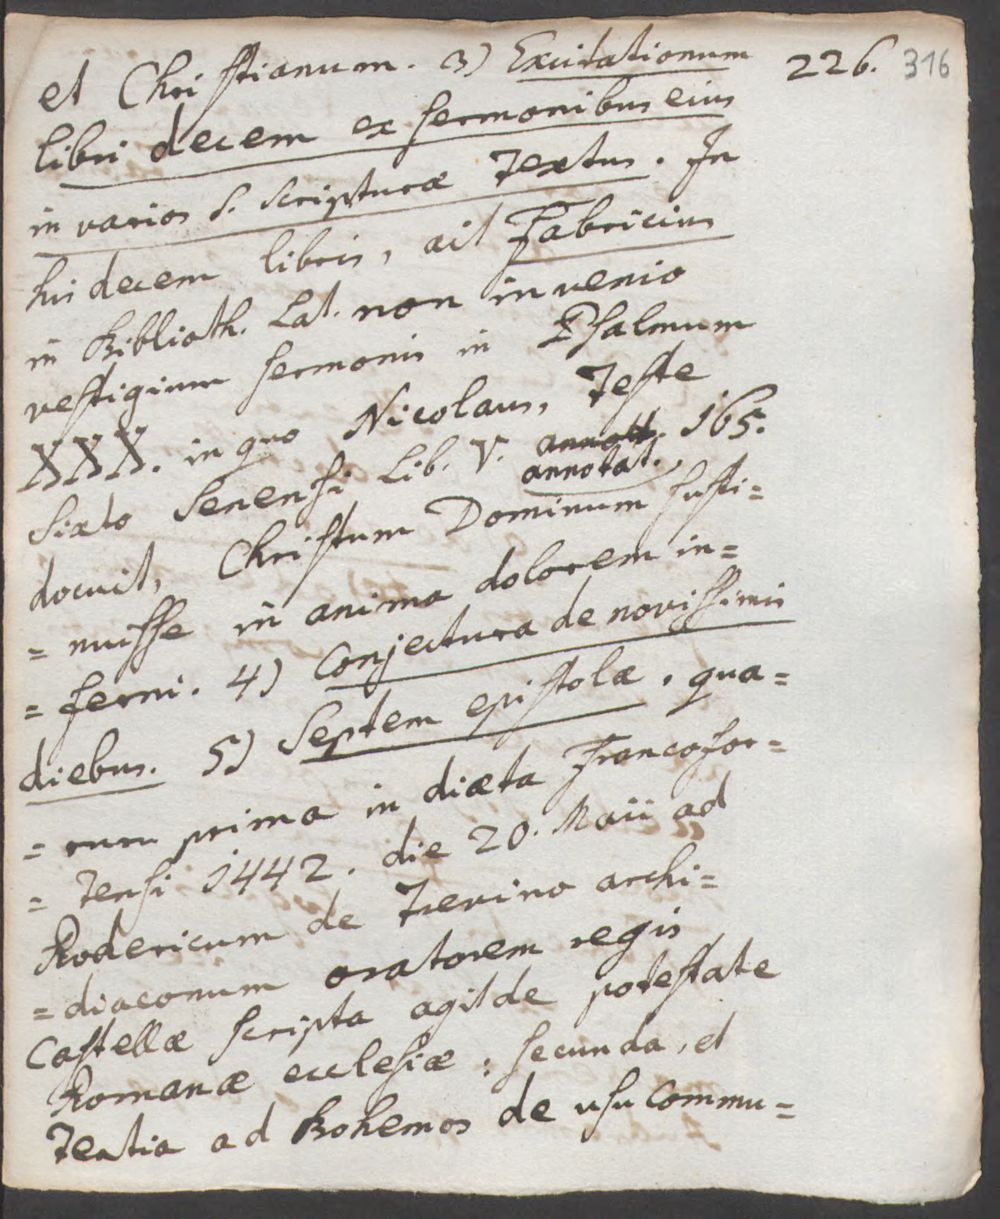 226. 316
et Christianum. 3) Excitationum
libri decem ex sermonibus eius
in varios S. Scripturæ Textus. In
his decem libris, ait Fabricius
in Biblioth. Lat. non invenio
vestigium sermonis in Psalmum
XXX. in quo Nicolaus, Teste
Sixto Senensi Lib. V. annott. annotat. 165.
docuit, Christum Dominum susti=
=nuisse in anima dolorem in=
=ferni. 4) Conjectura de novissimis
diebus. 5) Septem epistolæ, qua=
=rum prima in diæta Francofor=
=Tensi 1442. die 20. Maii ad
Rodericum de Trevino archi=
=diaconum oratorem regis
Castellæ scripta agit de potestate
Romanæ ecclesiæ: secunda, et
Tertia ad Bohemos de usu Commu=